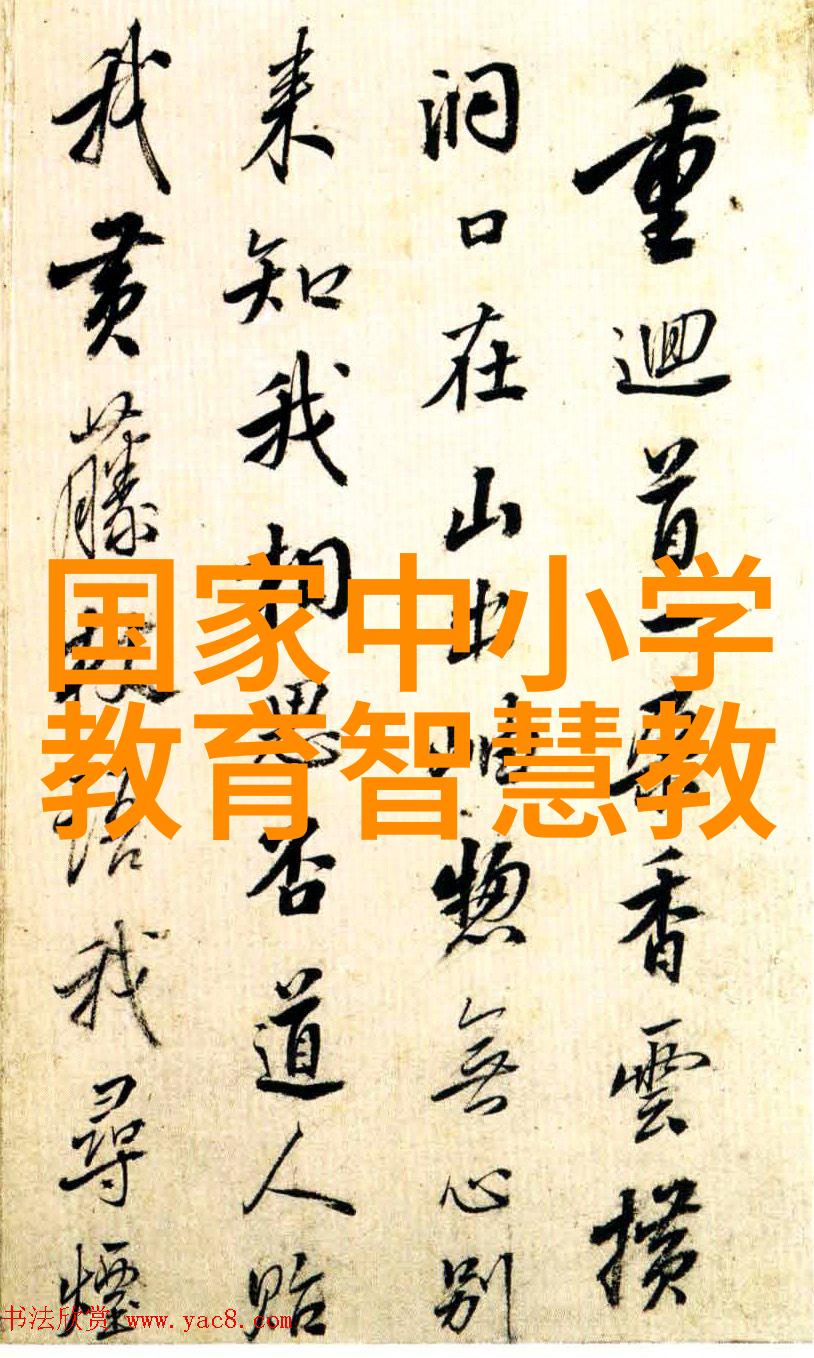 重迴首香雲横
洞口在山出岫惣無心別
来知我相思否道人貽
我黄藤杖語我尋煙
国家中小学
教育智慧教
书法欣赏 www.yac8.com